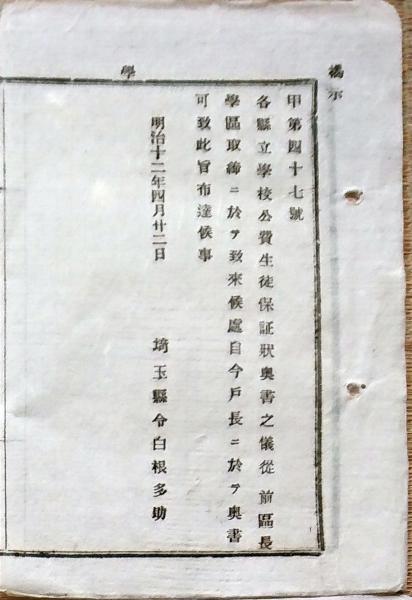 掲示
學
甲第四十七號
各縣立學校公費生徒保証狀奥書之儀從前區長
學區取締ニ於テ致來候處自今戸長ニ於テ奥書
可致此旨布達候事
明治十二年四月廿二日
埼玉縣令白根多助